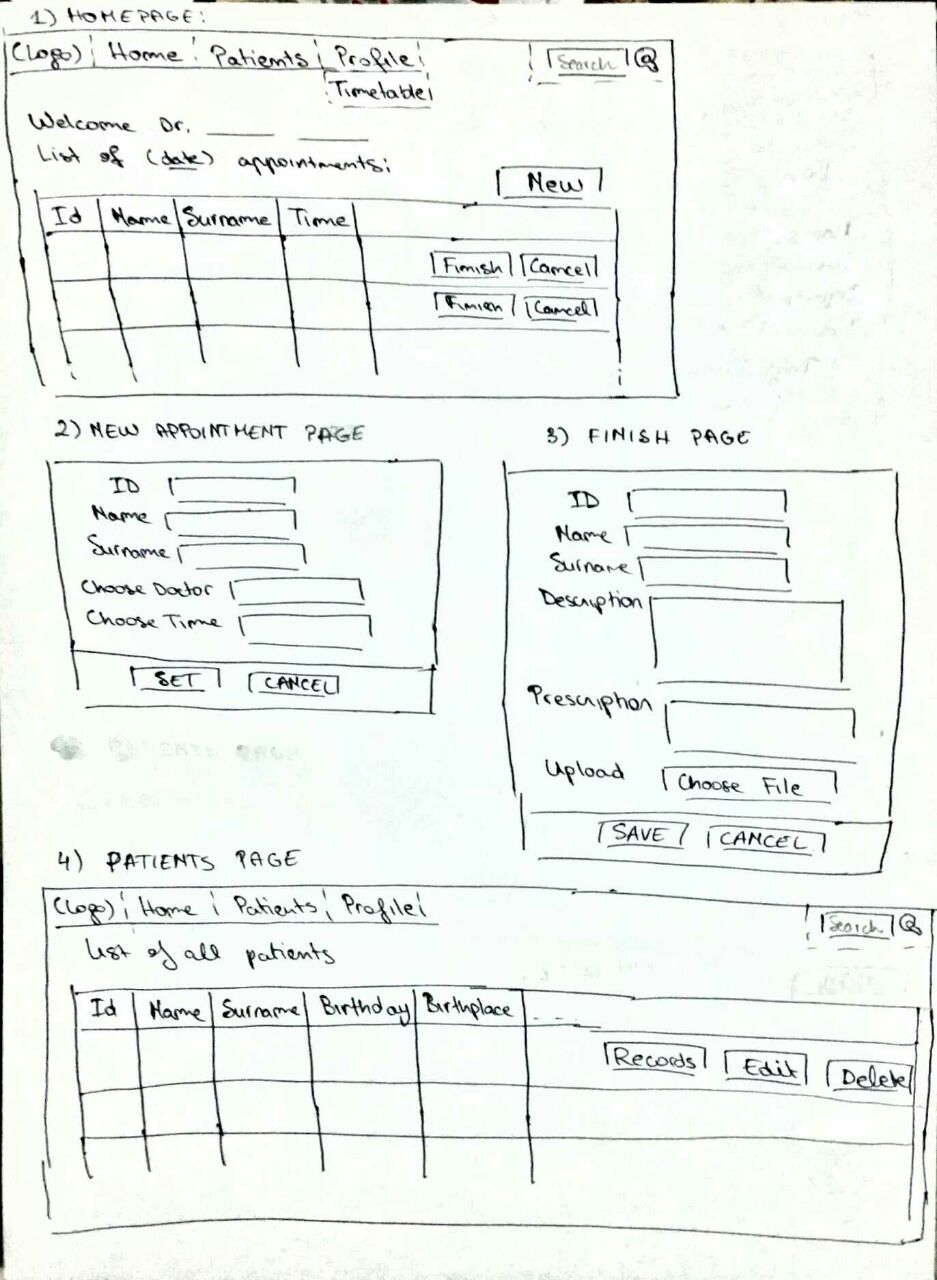 1) HOMEPAGE:
(Logo) Home Patients Profile Search
Timetable
Welcome Dr. ____ ____
List of (date) appointments:
New
Id Name Surname Time
Finish Cancel
Finish Cancel
2) NEW APPOINTMENT PAGE
ID
Name
Surname
Choose Doctor
Choose Time
SET CANCEL
3) FINISH PAGE
ID
Name
Surname
Description
Prescription
Upload Choose File
SAVE CANCEL
4) PATIENTS PAGE
(Logo) Home Patients Profile Search
List of all patients
Id Name Surname Birthday Birthplace ...
Records Edit Delete